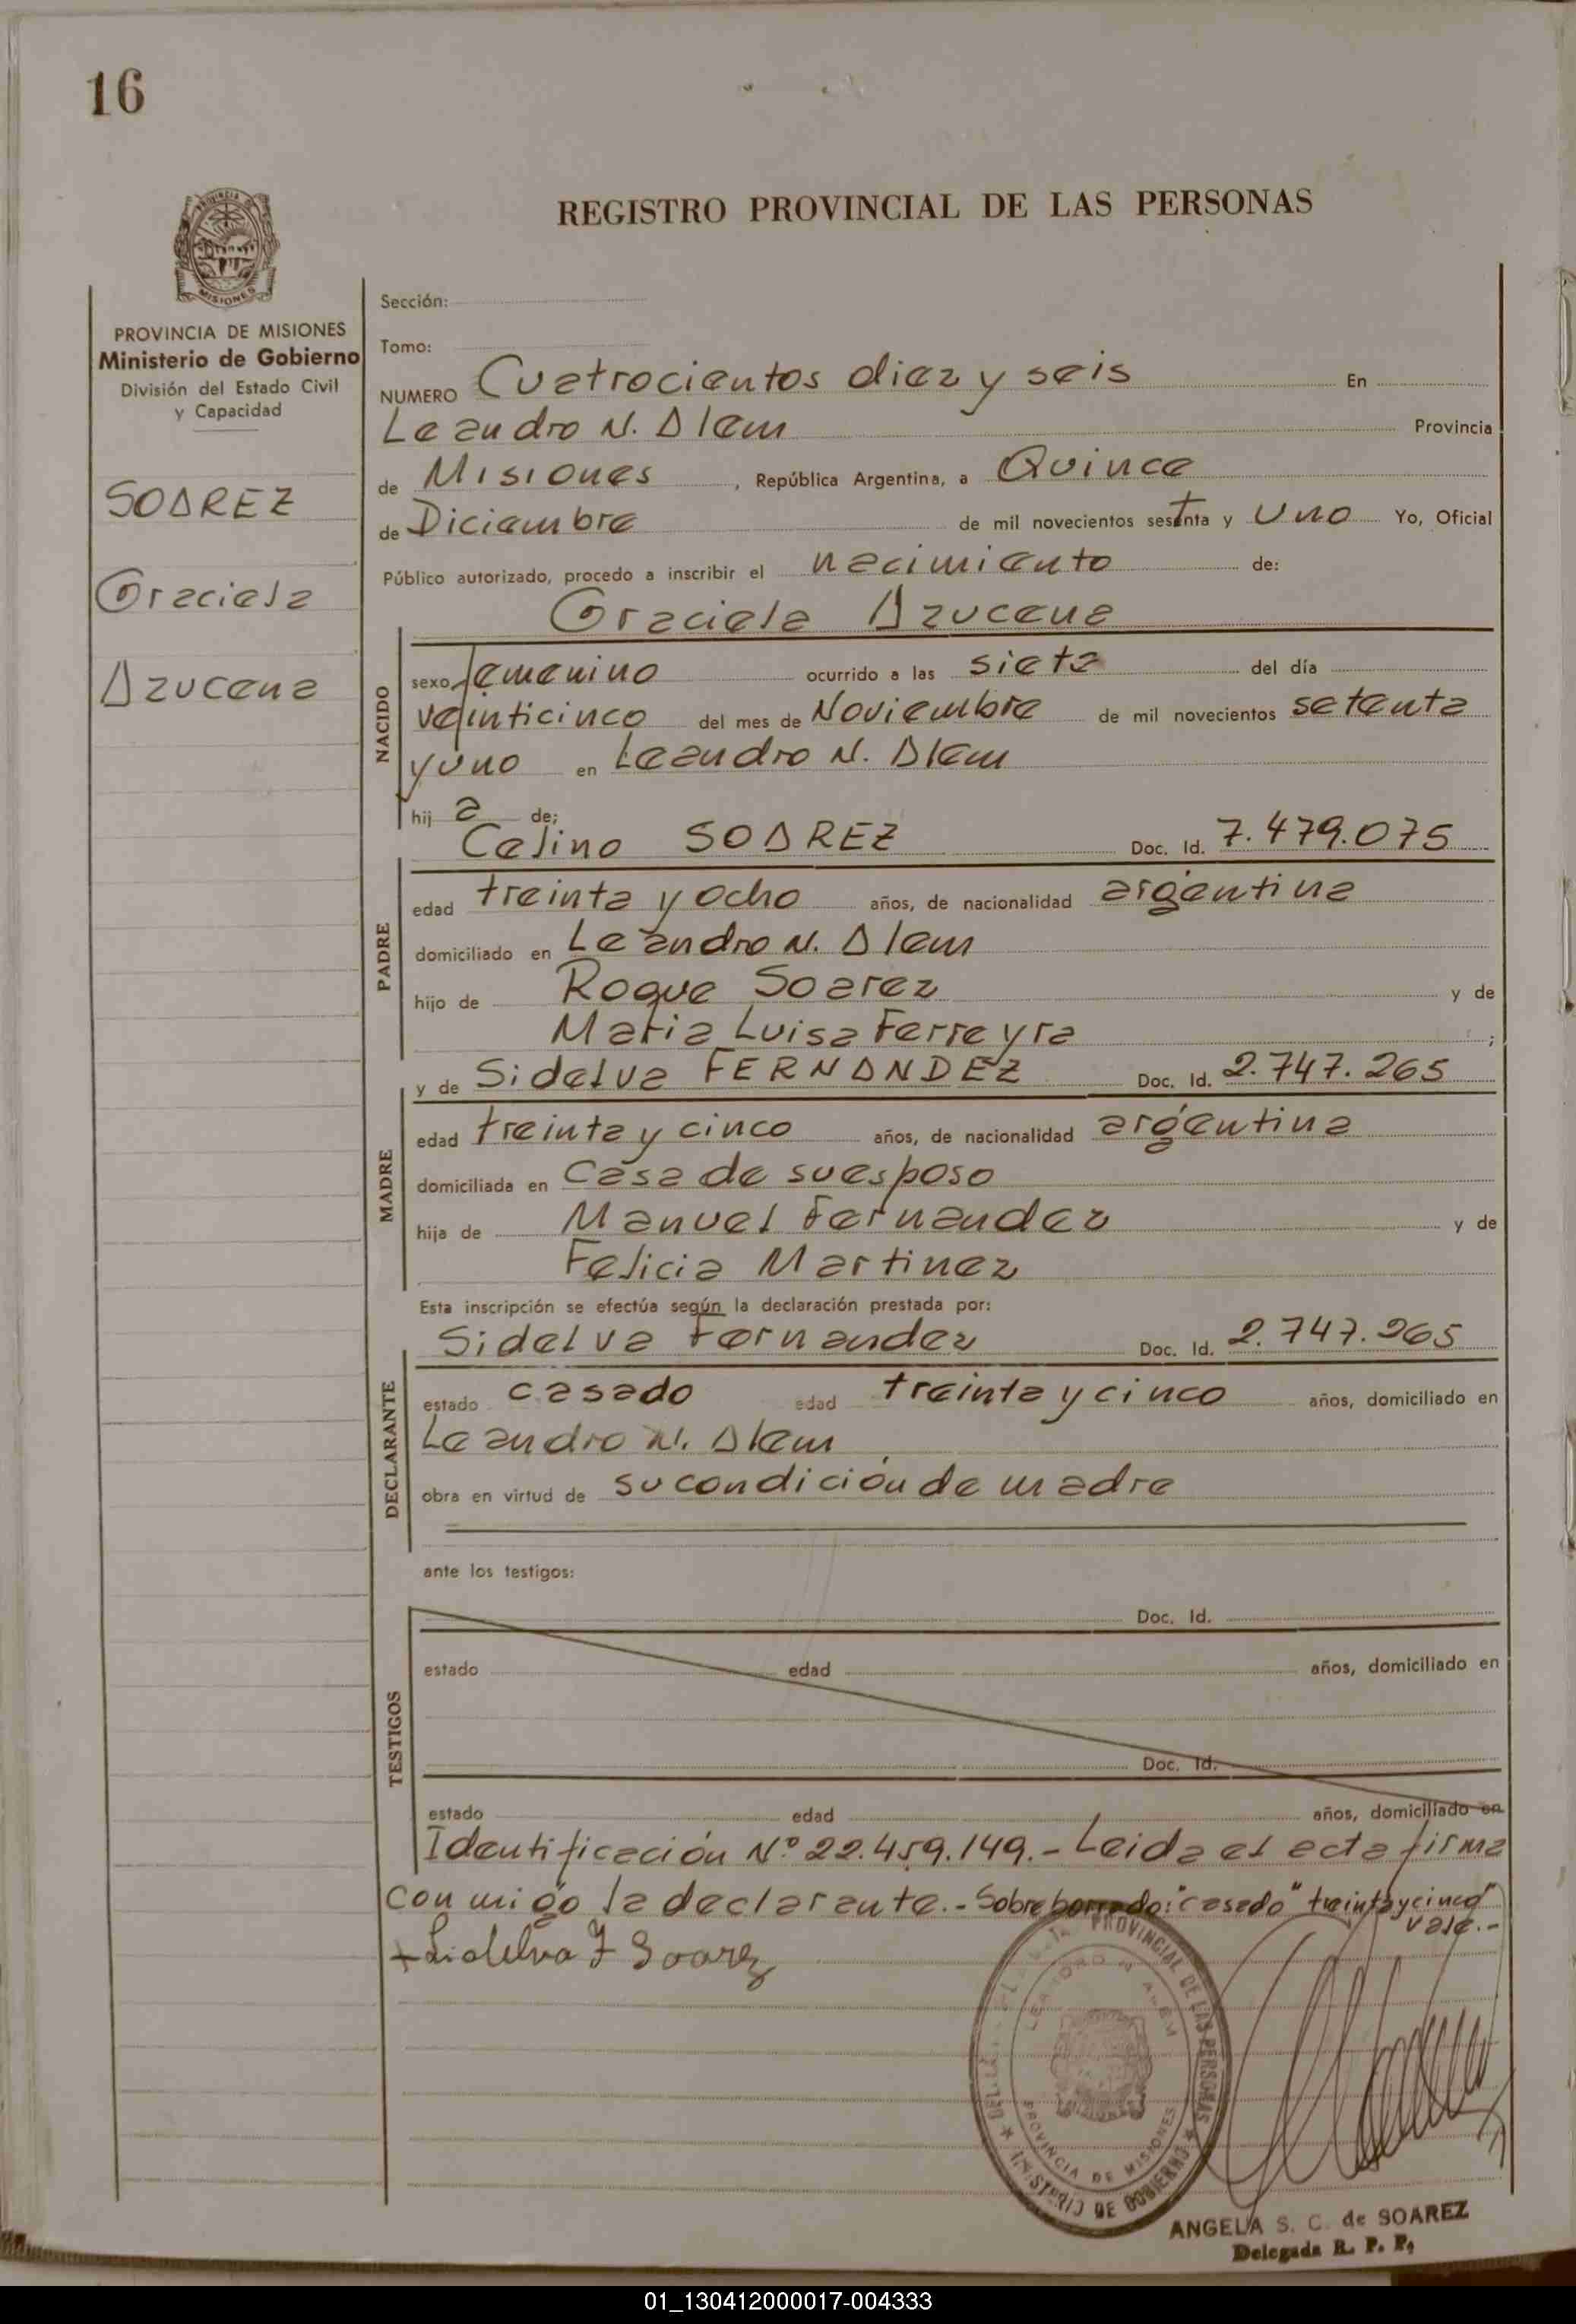 16
REGISTRO PROVINCIAL DE LAS PERSONAS
MISIONES
PROVINCIA DE MISIONES
Ministerio de Gobierno
División del Estado Civil
y Capacidad
SOAREZ
Graciela
Azucena
Sección:
Tomo:
NUMERO Cuatrocientos diez y seis En
Leandro N. Alem Provincia
de Misiones, República Argentina, a Quince
de Diciembre de mil novecientos setenta y uno Yo, Oficial
Público autorizado, procedo a inscribir el nacimiento de:
Graciela Azucena
NACIDO
sexo femenino ocurrido a las siete del día
veinticinco del mes de Noviembre de mil novecientos setenta
y uno en Leandro N. Alem
hij a de;
Celino SOAREZ Doc. Id. 7.479.075
PADRE
edad treinta y ocho años, de nacionalidad argentina
domiciliado en Leandro N. Alem
hijo de Roque Soarez y de
Maria Luisa Ferreyra ;
y de Sidelva FERNANDEZ Doc. Id. 2.747.265
MADRE
edad treinta y cinco años, de nacionalidad argentina
domiciliada en Casa de su esposo
hija de Manuel Fernandez y de
Felicia Martinez
Esta inscripción se efectúa según la declaración prestada por:
Sidelva Fernandez Doc. Id. 2.747.265
DECLARANTE
estado casado edad treinta y cinco años, domiciliado en
Leandro N. Alem
obra en virtud de su condición de madre
ante los testigos:
Doc. Id.
TESTIGOS
estado edad años, domiciliado en
Doc. Id.
estado edad años, domiciliado en
Identificación Nº 22.459.149.- Leida el acta firma
conmigo la declarante.- Sobreborrado: "casado" treinta y cinco"
vale.-
Sidelva F Soarez
PROVINCIAL DE LAS PERSONAS
LEANDRO N ALEM
PROVINCIA DE MISIONES
MINISTERIO DE GOBIERNO
ANGELA S. C. de SOAREZ
Delegada R. P. P.
01_130412000017-004333